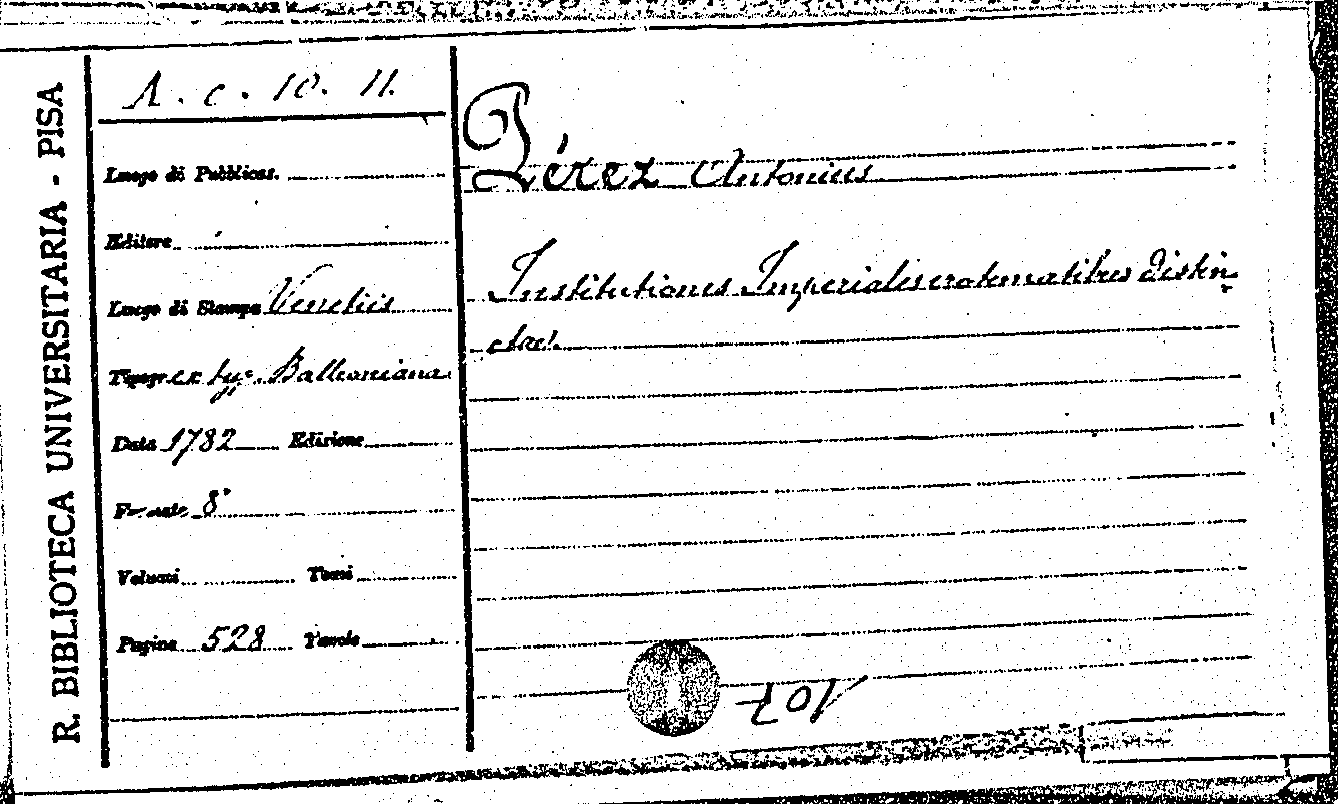 R. BIBLIOTECA UNIVERSITARIA - PISA
A. c. 10. 11.
Luogo di Pubblicaz.
Editore
Luogo di Stampa Venetiis
Tipogr. ex typ. Balleoniana
Data 1782 Edizione
Formato 8°
Volumi Tomi
Pagine 528 Tavole
Pérez Antonius
Institutiones Imperiales erotematibus distin-
ctae.
107